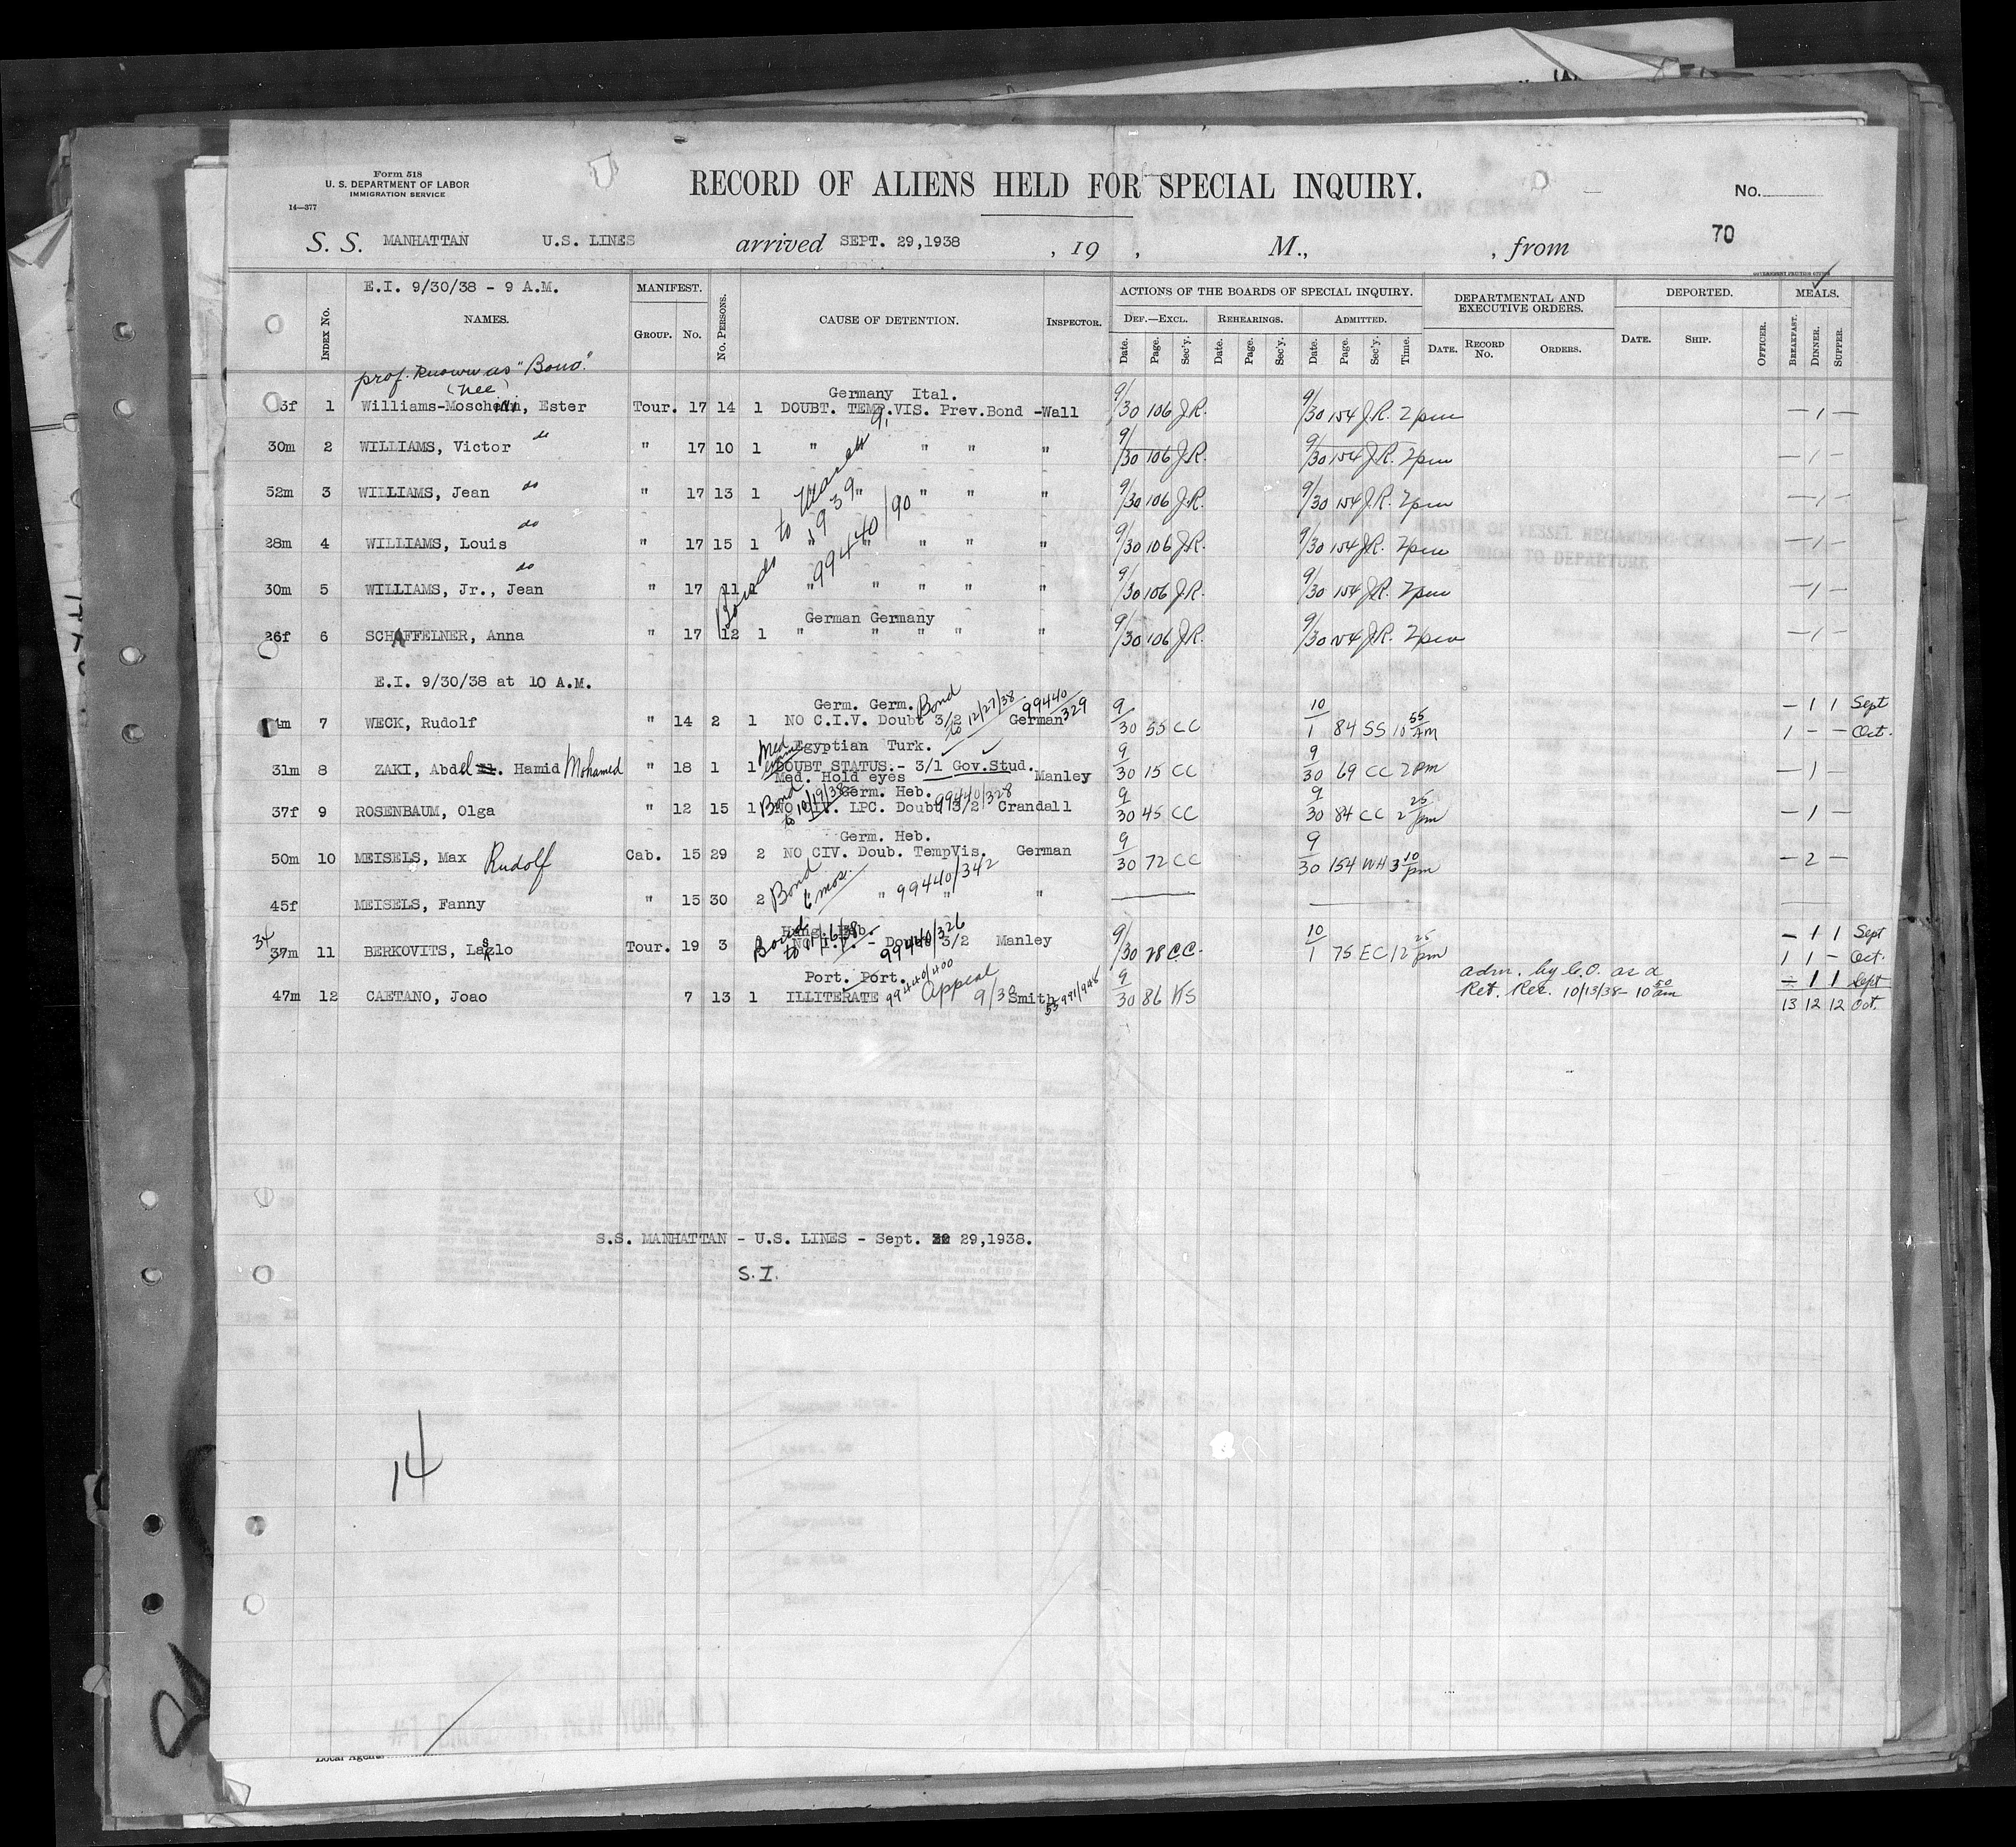 Form 518
U. S. DEPARTMENT OF LABOR
IMMIGRATION SERVICE
14—377
RECORD OF ALIENS HELD FOR SPECIAL INQUIRY.
No.
S. S. MANHATTAN U.S. LINES arrived SEPT. 29,1938 , 19 , M., , from 70
E.I. 9/30/38 - 9 A.M.
INDEX No. NAMES. MANIFEST. GROUP. No. No. PERSONS. CAUSE OF DETENTION. INSPECTOR. ACTIONS OF THE BOARDS OF SPECIAL INQUIRY. DEPARTMENTAL AND EXECUTIVE ORDERS. DEPORTED. MEALS.
DEF.—EXCL. REHEARINGS. ADMITTED.
Date. Page. Sec'y. Date. Page. Sec'y. Date. Page. Sec'y. Time. DATE. RECORD No. ORDERS. DATE. SHIP. OFFICER. BREAKFAST. DINNER. SUPPER.
prof. known as "Bono."
(nee)
Germany Ital.
3f 1 Williams-Moschini, Ester Tour. 17 14 1 DOUBT. TEMP.VIS. Prev.Bond -Wall 9/30 106 J.R. 9/30 154 J.R. 2pm — 1 —
30m 2 WILLIAMS, Victor do " 17 10 1 " " " " 9/30 106 J.R. 9/30 154 J.R. 2pm — 1 —
52m 3 WILLIAMS, Jean do " 17 13 1 " " " " 9/30 106 J.R. 9/30 154 J.R. 2pm — 1 —
28m 4 WILLIAMS, Louis do " 17 15 1 " " " " " 9/30 106 J.R. 9/30 154 J.R. 2pm — 1 —
30m 5 WILLIAMS, Jr., Jean do " 17 11 1 " " " " " 9/30 106 J.R. 9/30 154 J.R. 2pm — 1 —
Bonds to March 9, 1939
99440/90
German Germany
26f 6 SCHAFFELNER, Anna " 17 12 1 " " " " " 9/30 106 J.R. 9/30 154 J.R. 2pm — 1 —
E.I. 9/30/38 at 10 A.M.
Germ. Germ. Bond to 12/27/38 99440/329
4m 7 WECK, Rudolf " 14 2 1 NO C.I.V. Doubt 3/2 German 9/30 55 CC 10/1 84 SS 10 55 AM — 1 1 Sept
1 — — Oct.
Egyptian Turk.
31m 8 ZAKI, Abdel Hamid Mohamed " 18 1 1 DOUBT STATUS.- 3/1 Gov.Stud. 9/30 15 CC 9/30 69 CC 2pm — 1 —
Med. Hold eyes Manley
Germ. Heb. 99440/328
37f 9 ROSENBAUM, Olga " 12 15 1 NO CIV. LPC. Doubt 3/2 Crandall 9/30 45 CC 9/30 84 CC 2 25 pm — 1 —
Bond to 10/19/38
Germ. Heb.
50m 10 MEISELS, Max Rudolf Cab. 15 29 2 NO CIV. Doub. TempVis. German 9/30 72 CC 9/30 154 WH 3 10 pm — 2 —
Bond 6 mos. 99440/342
45f MEISELS, Fanny " 15 30 2 " " "
Hung. Heb.
34 37m 11 BERKOVITS, Laszlo Tour. 19 3 NO I.V. - Doubt 3/2 Manley 9/30 28 C.C. 10/1 75 EC 12 25 pm — 1 1 Sept
Bond to 11/6/38 99440/326
1 1 — Oct.
Port. Port. 99440/400 Appeal 9/30
47m 12 CAETANO, Joao 7 13 1 ILLITERATE Smith 55991/998 9/30 86 KS adm. by C.O. as a — 1 1 Sept
Ret. Res. 10/13/38- 10 50 am 13 12 12 Oct.
S.S. MANHATTAN - U.S. LINES - Sept. 29,1938.
S.I.
14
Local Agent